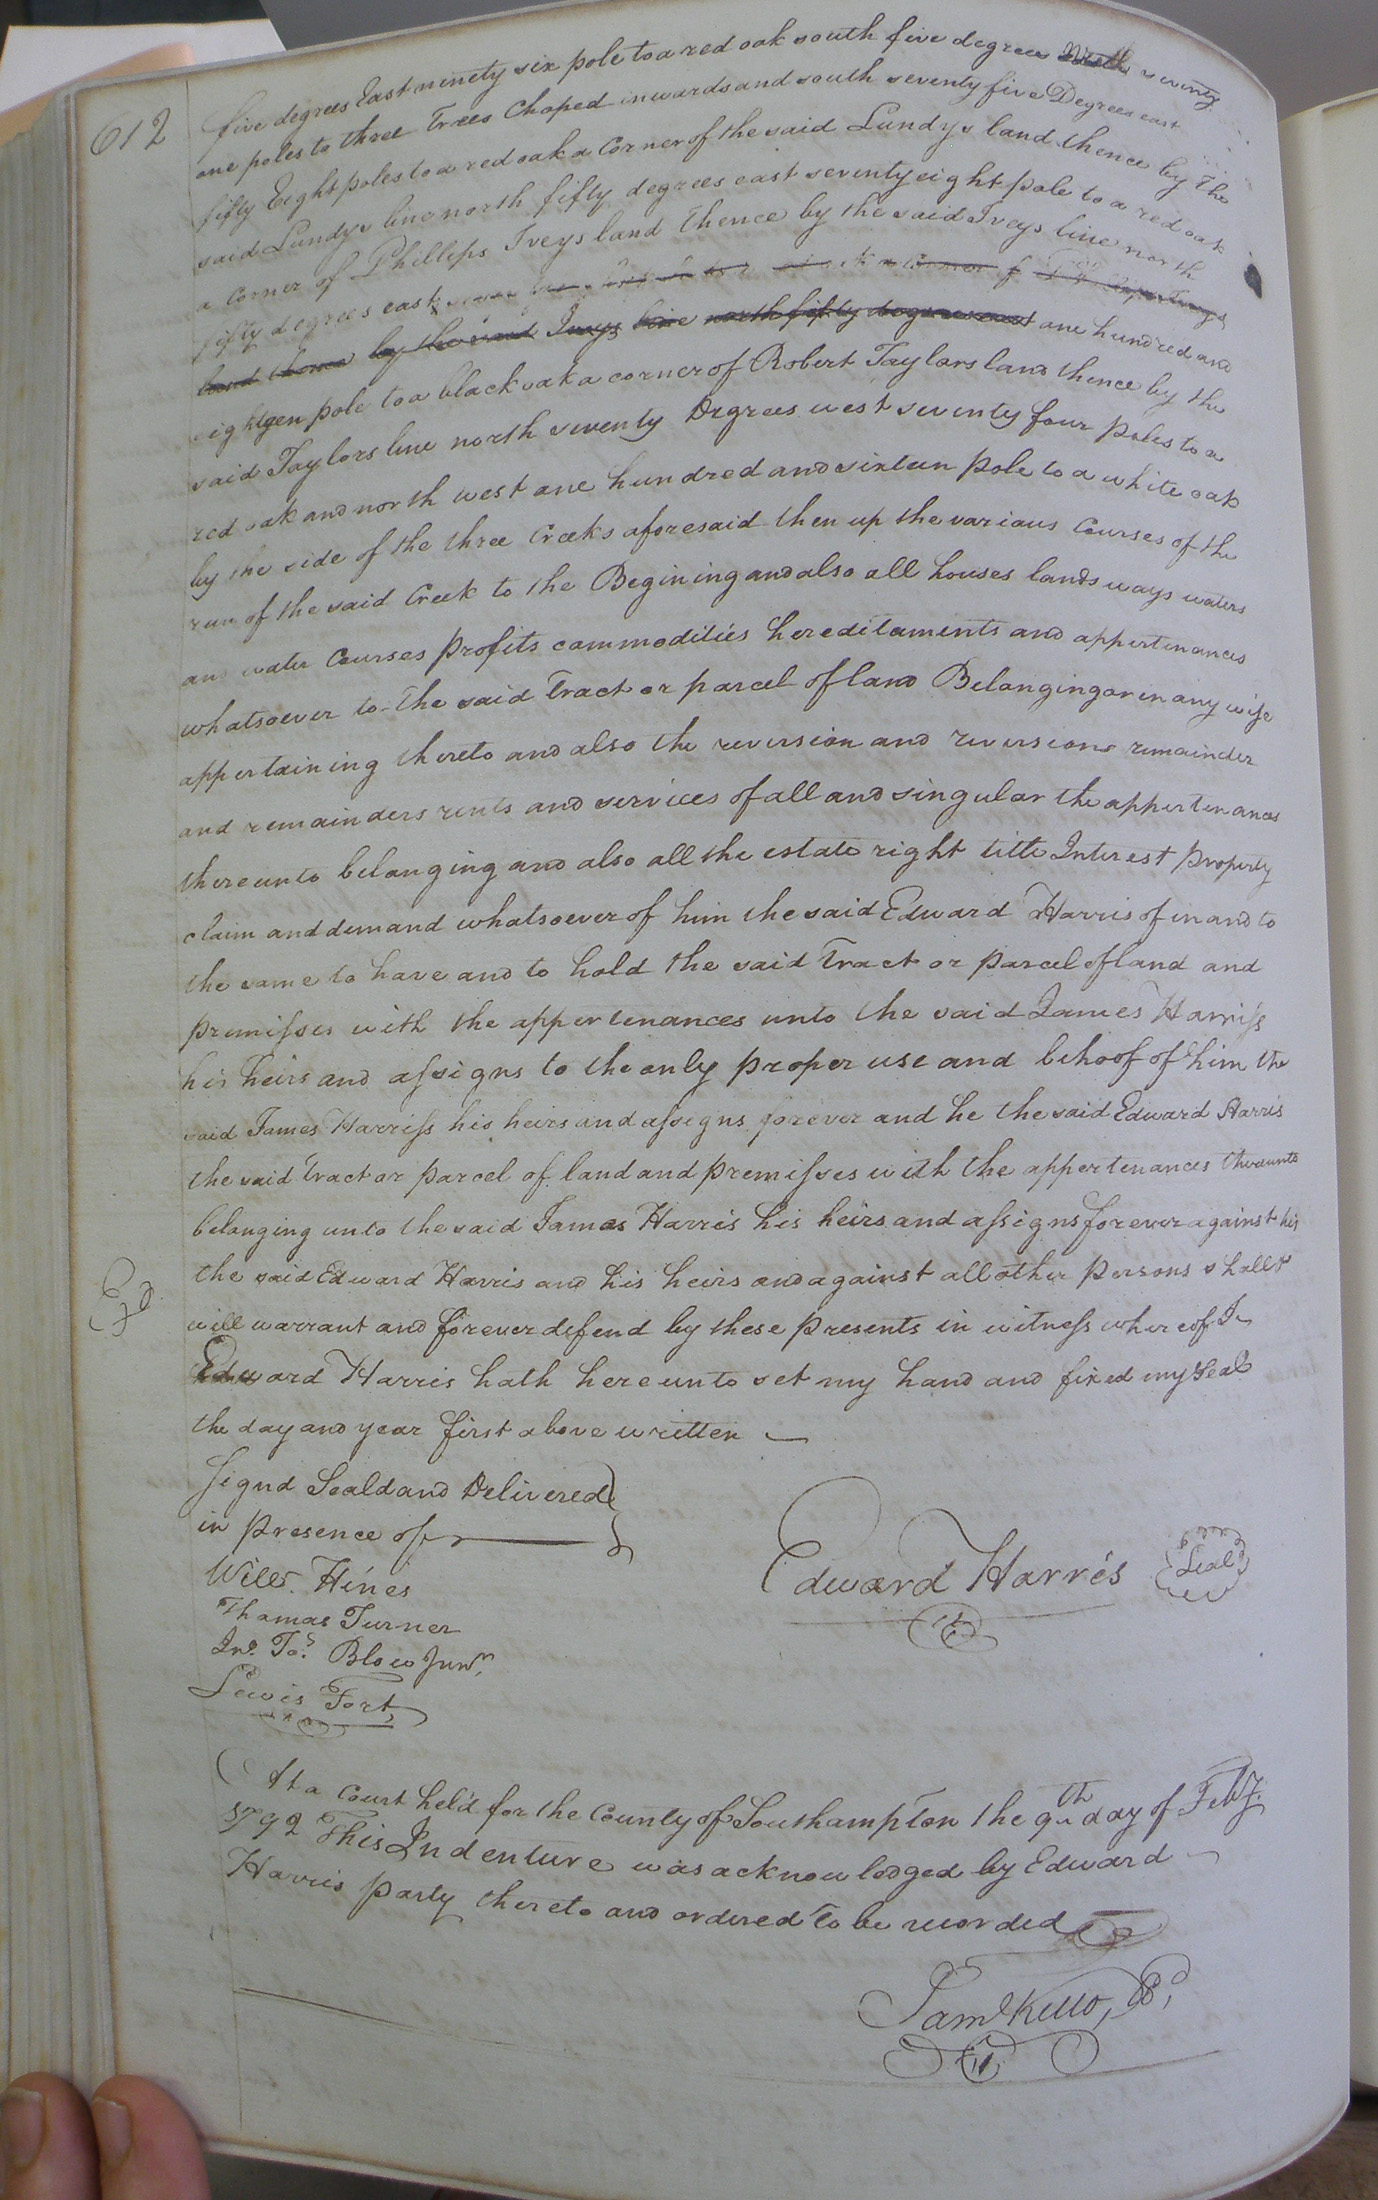 612
five degrees East ninety six pole to a red oak south five degrees seventy
one poles to three Trees Choped inwards and south seventy five Degrees east
fifty Eight poles to a red oak a Corner of the said Lundys land thence by the
said Lundys line north fifty degrees east seventy eight pole to a red oak
a Corner of Phillips Iveys land thence by the said Iveys line north
fifty degrees east
land thence by the said Iveys line north fifty degrees east one hundred and
eighteen pole to a black oak a corner of Robert Taylors land thence by the
said Taylors line north seventy Degrees west seventy four poles to a
red oak and north west one hundred and sixteen pole to a white oak
by the side of the three Creeks aforesaid then up the various Courses of the
run of the said Creek to the Begining and also all houses lands ways waters
and water Courses profits commodities hereditaments and appertenances
whatsoever to the said Tract or parcel of land Belonging or in any wise
appertaining thereto and also the reversion and reversions remainder
and remainders rents and services of all and singular the appertenances
thereunto belonging and also all the estate right title Interest property
claim and demand whatsoever of him the said Edward Harris of in and to
the same to have and to hold the said Tract or parcel of land and
premisses with the appertenances unto the said James Harriss
his heirs and assigns to the only proper use and behoof of him the
said James Harriss his heirs and assigns forever and he the said Edward Harris
the said Tract or parcel of land and premisses with the appertenances thereunto
belonging unto the said James Harris his heirs and assigns forever against his
the said Edward Harris and his heirs and against all other persons shall &
Exd.
will warrant and forever defend by these presents in witness whereof I
Edward Harris hath hereunto set my hand and fixed my Seal
the day and year first above written
Signd Seald and Delivered
in presence of
Edward Harris Seal
Will. Hines
Thomas Turner
Jno. Tos. Blow Junr.
Lewis Fort
At a Court held for the County of Southampton the 9th day of Feby.
1792 This Indenture was acknowledged by Edward
Harris party thereto and ordered to be recorded
Saml Kello,